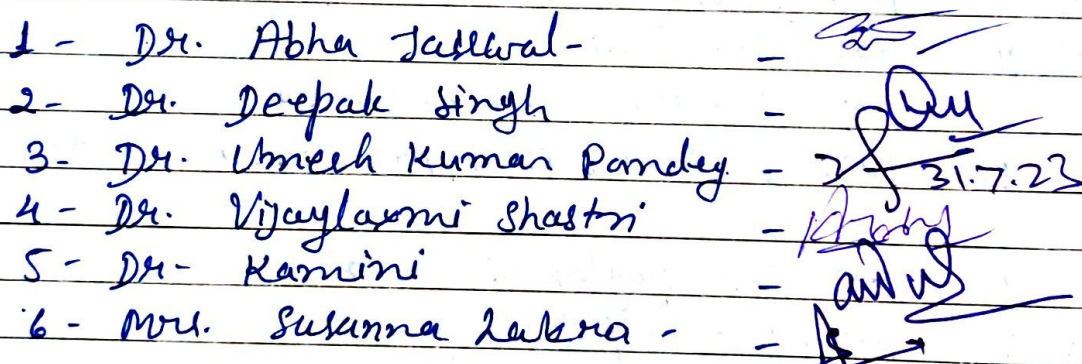 1 - Dr. Abha Jaiswal -  -
2 - Dr. Deepak Singh -
3 - Dr. Umesh Kumar Pandey. - 31.7.23
4 - Dr. Vijaylaxmi Shastri -
5 - Dr - Kamini -
6 - Mrs. Susanna Lakra - -